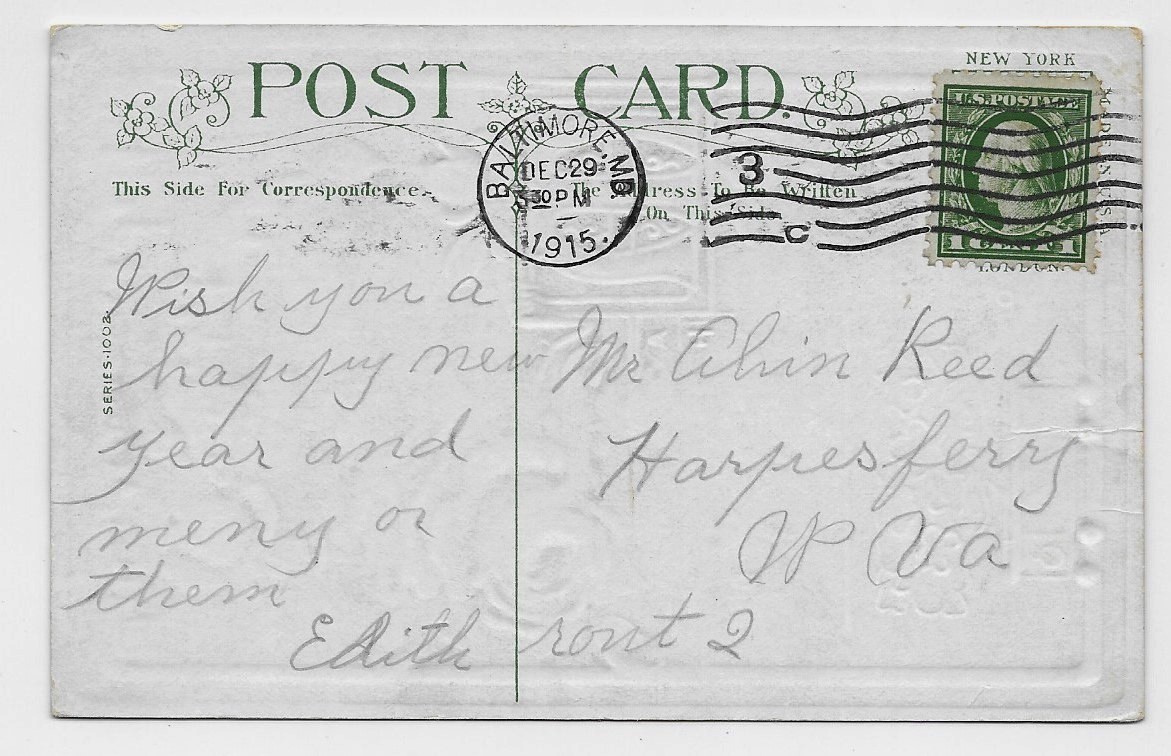 POST CARD.
NEW YORK
This Side For Correspondence.
The Address To Be Written
On This Side
BALTIMORE, MD.
DEC 29
3 30 PM
1915.
3
C
U.S. POSTAGE
1 CENT 1
LONDON.
SERIES.1002.
Wish you a
happy new
year and
meny or
them
Edith
Mr Alvin Reed
Harpesferry
W Va
rout 2